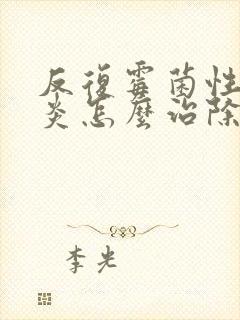 反復霉菌性
炎怎麼治除
李光